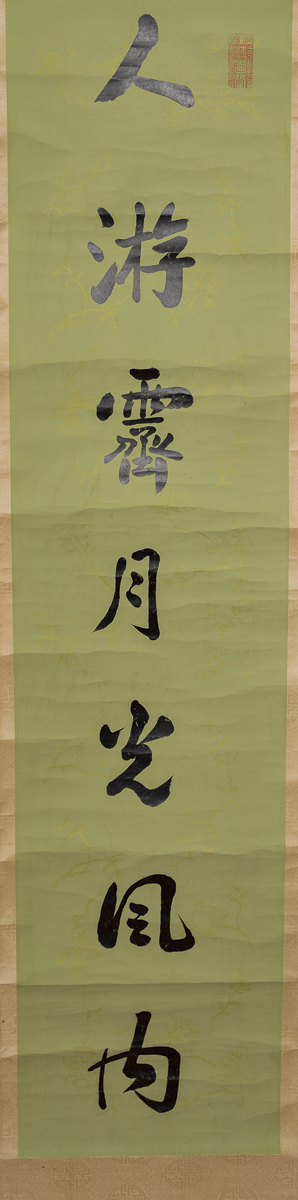 人游霽月光風内